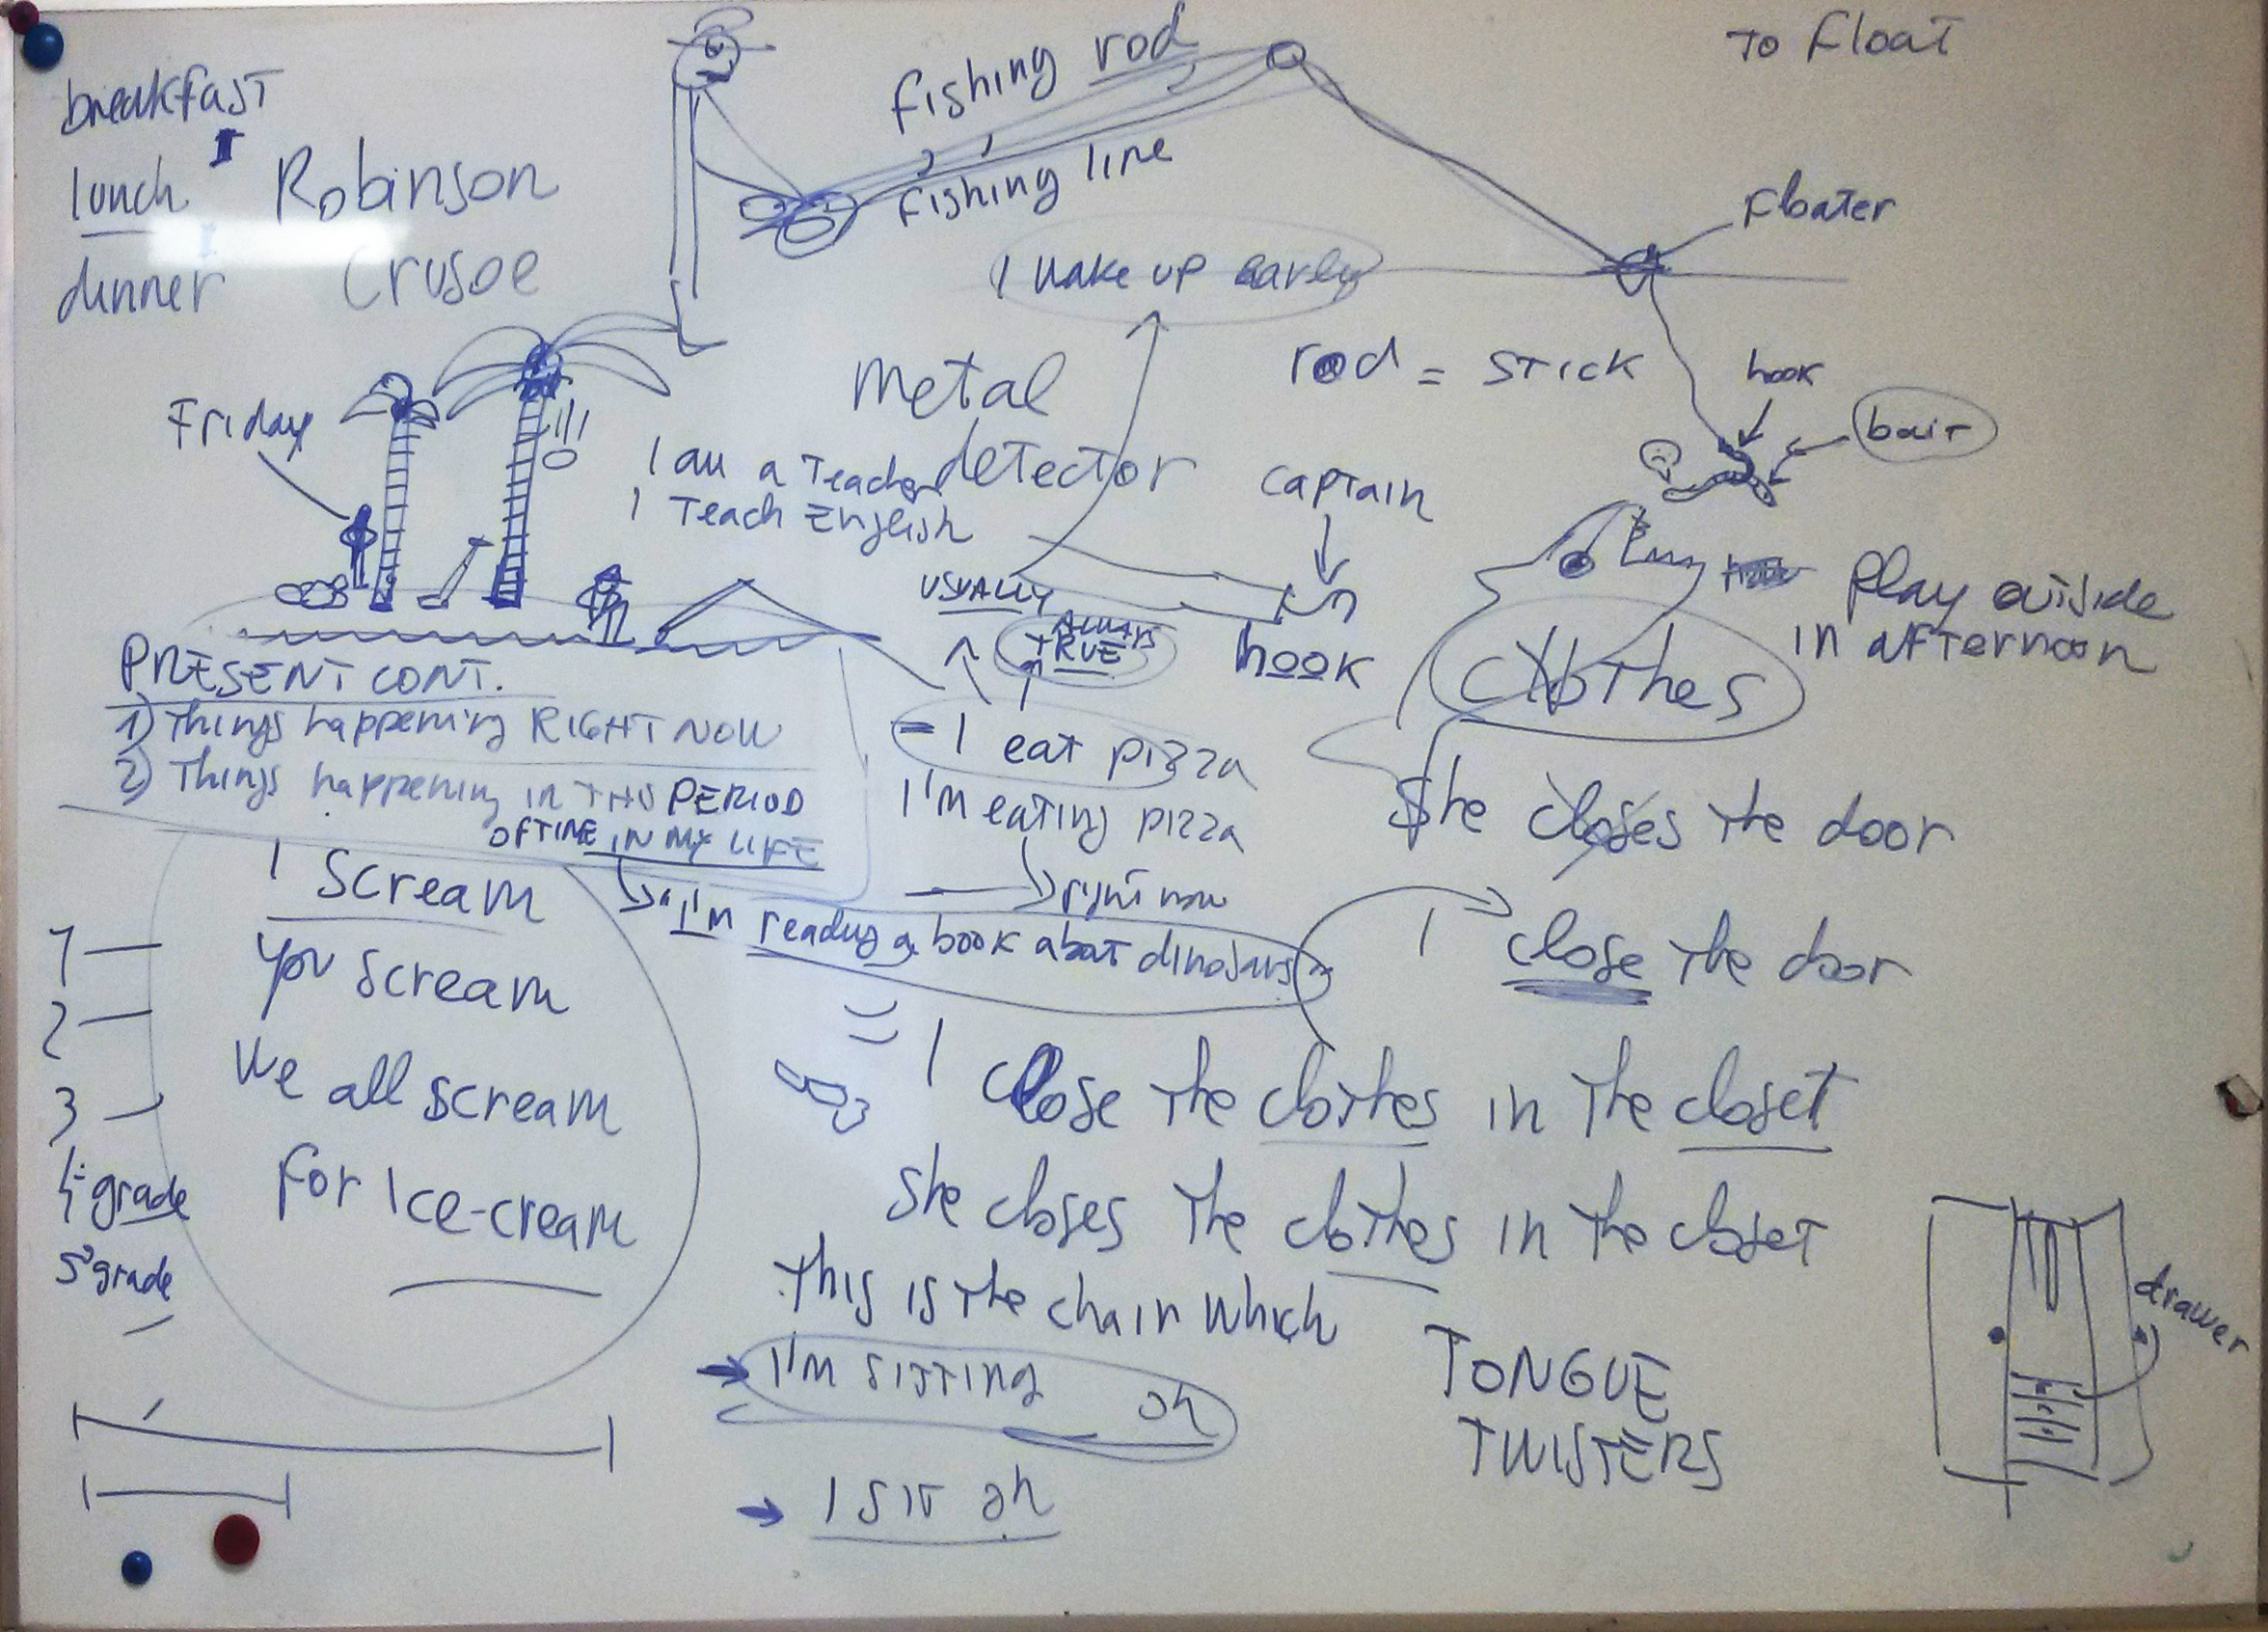 breakfast
lunch
dinner
Robinson
Crusoe
fishing rod
fishing line
To Float
Floater
I wake up early
rod = STICK
hook
bait
Metal
detector
Friday
I am a Teacher
I Teach English
captain
hook
USUALLY
ALWAYS
TRUE
Play outside
in afternoon
clothes
PRESENT CONT.
1) Things happening RIGHT NOW
2) Things happening IN THIS PERIOD
OF TIME IN MY LIFE
"I'm reading a book about dinosaurs"
- I eat pizza
I'm eating pizza
right now
She closes the door
I close the door
I scream
you scream
We all scream
For Ice-cream
1
2
3
4° grade
5° grade
I Close the clothes in the closet
She closes the clothes in the closet
This is the chair which
I'm sitting on
I sit on
TONGUE
TWISTERS
drawer